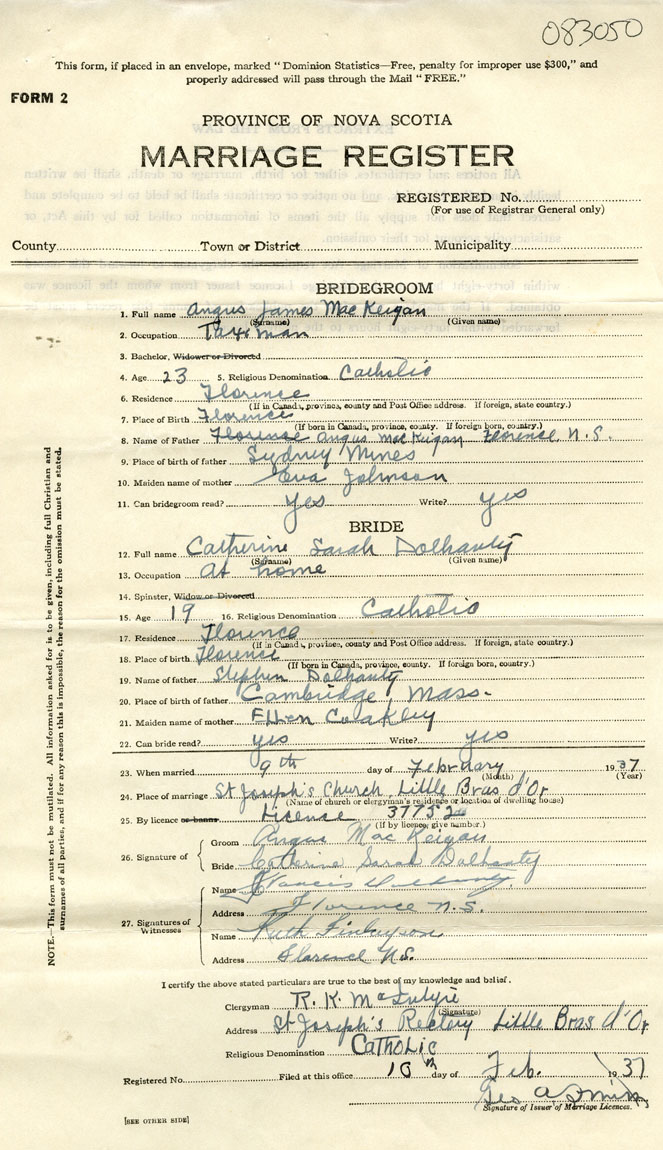 083050
This form, if placed in an envelope, marked "Dominion Statistics—Free, penalty for improper use $300," and
properly addressed will pass through the Mail "FREE."
FORM 2
PROVINCE OF NOVA SCOTIA
MARRIAGE REGISTER
REGISTERED No.
(For use of Registrar General only)
County Town or District Municipality
BRIDEGROOM
1. Full name Angus James MacKeigan
(Surname) (Given name)
2. Occupation
3. Bachelor, Widower or Divorced
4. Age 23 5. Religious Denomination Catholic
6. Residence Florence
(If in Canada, province, county and Post Office address. If foreign, state country.)
7. Place of Birth Florence
(If born in Canada, province, county. If foreign born, country.)
8. Name of Father Florence Angus MacKeigan Florence N.S.
9. Place of birth of father Sydney Mines
10. Maiden name of mother Eva Johnson
11. Can bridegroom read? Yes Write? yes
BRIDE
12. Full name Catherine Sarah Dolhanty
(Surname) (Given name)
13. Occupation At home
14. Spinster, Widow or Divorced
15. Age 19 16. Religious Denomination Catholic
17. Residence Florence
(If in Canada, province, county and Post Office address. If foreign, state country.)
18. Place of birth Florence
(If born in Canada, province, county. If foreign born, country.)
19. Name of father Stephen Dolhanty
20. Place of birth of father Cambridge, Mass.
21. Maiden name of mother Ellen Coakley
22. Can bride read? yes Write? yes
23. When married 9th day of February 1937
(Month) (Year)
24. Place of marriage St Joseph's Church, Little Bras d'Or
(Name of church or clergyman's residence or location of dwelling house)
25. By licence or banns License 37752
(If by licence, give number.)
26. Signature of Groom Angus MacKeigan
Bride Catherine Sarah Dolhanty
27. Signatures of Witnesses
Name Francis Dolhanty
Address Florence N.S.
Name Ruth Finlayson
Address Florence N.S.
I certify the above stated particulars are true to the best of my knowledge and belief.
Clergyman R. K. McIntyre
(Signature)
Address St Joseph's Rectory Little Bras d'Or
Religious Denomination Catholic
Registered No. Filed at this office 10th day of Feb. 1937
Geo A
Signature of Issuer of Marriage Licences.
[SEE OTHER SIDE]
NOTE.—This form must not be mutilated. All information asked for is to be given, including full Christian and
surnames of all parties, and if for any reason this is impossible, the reason for the omission must be stated.